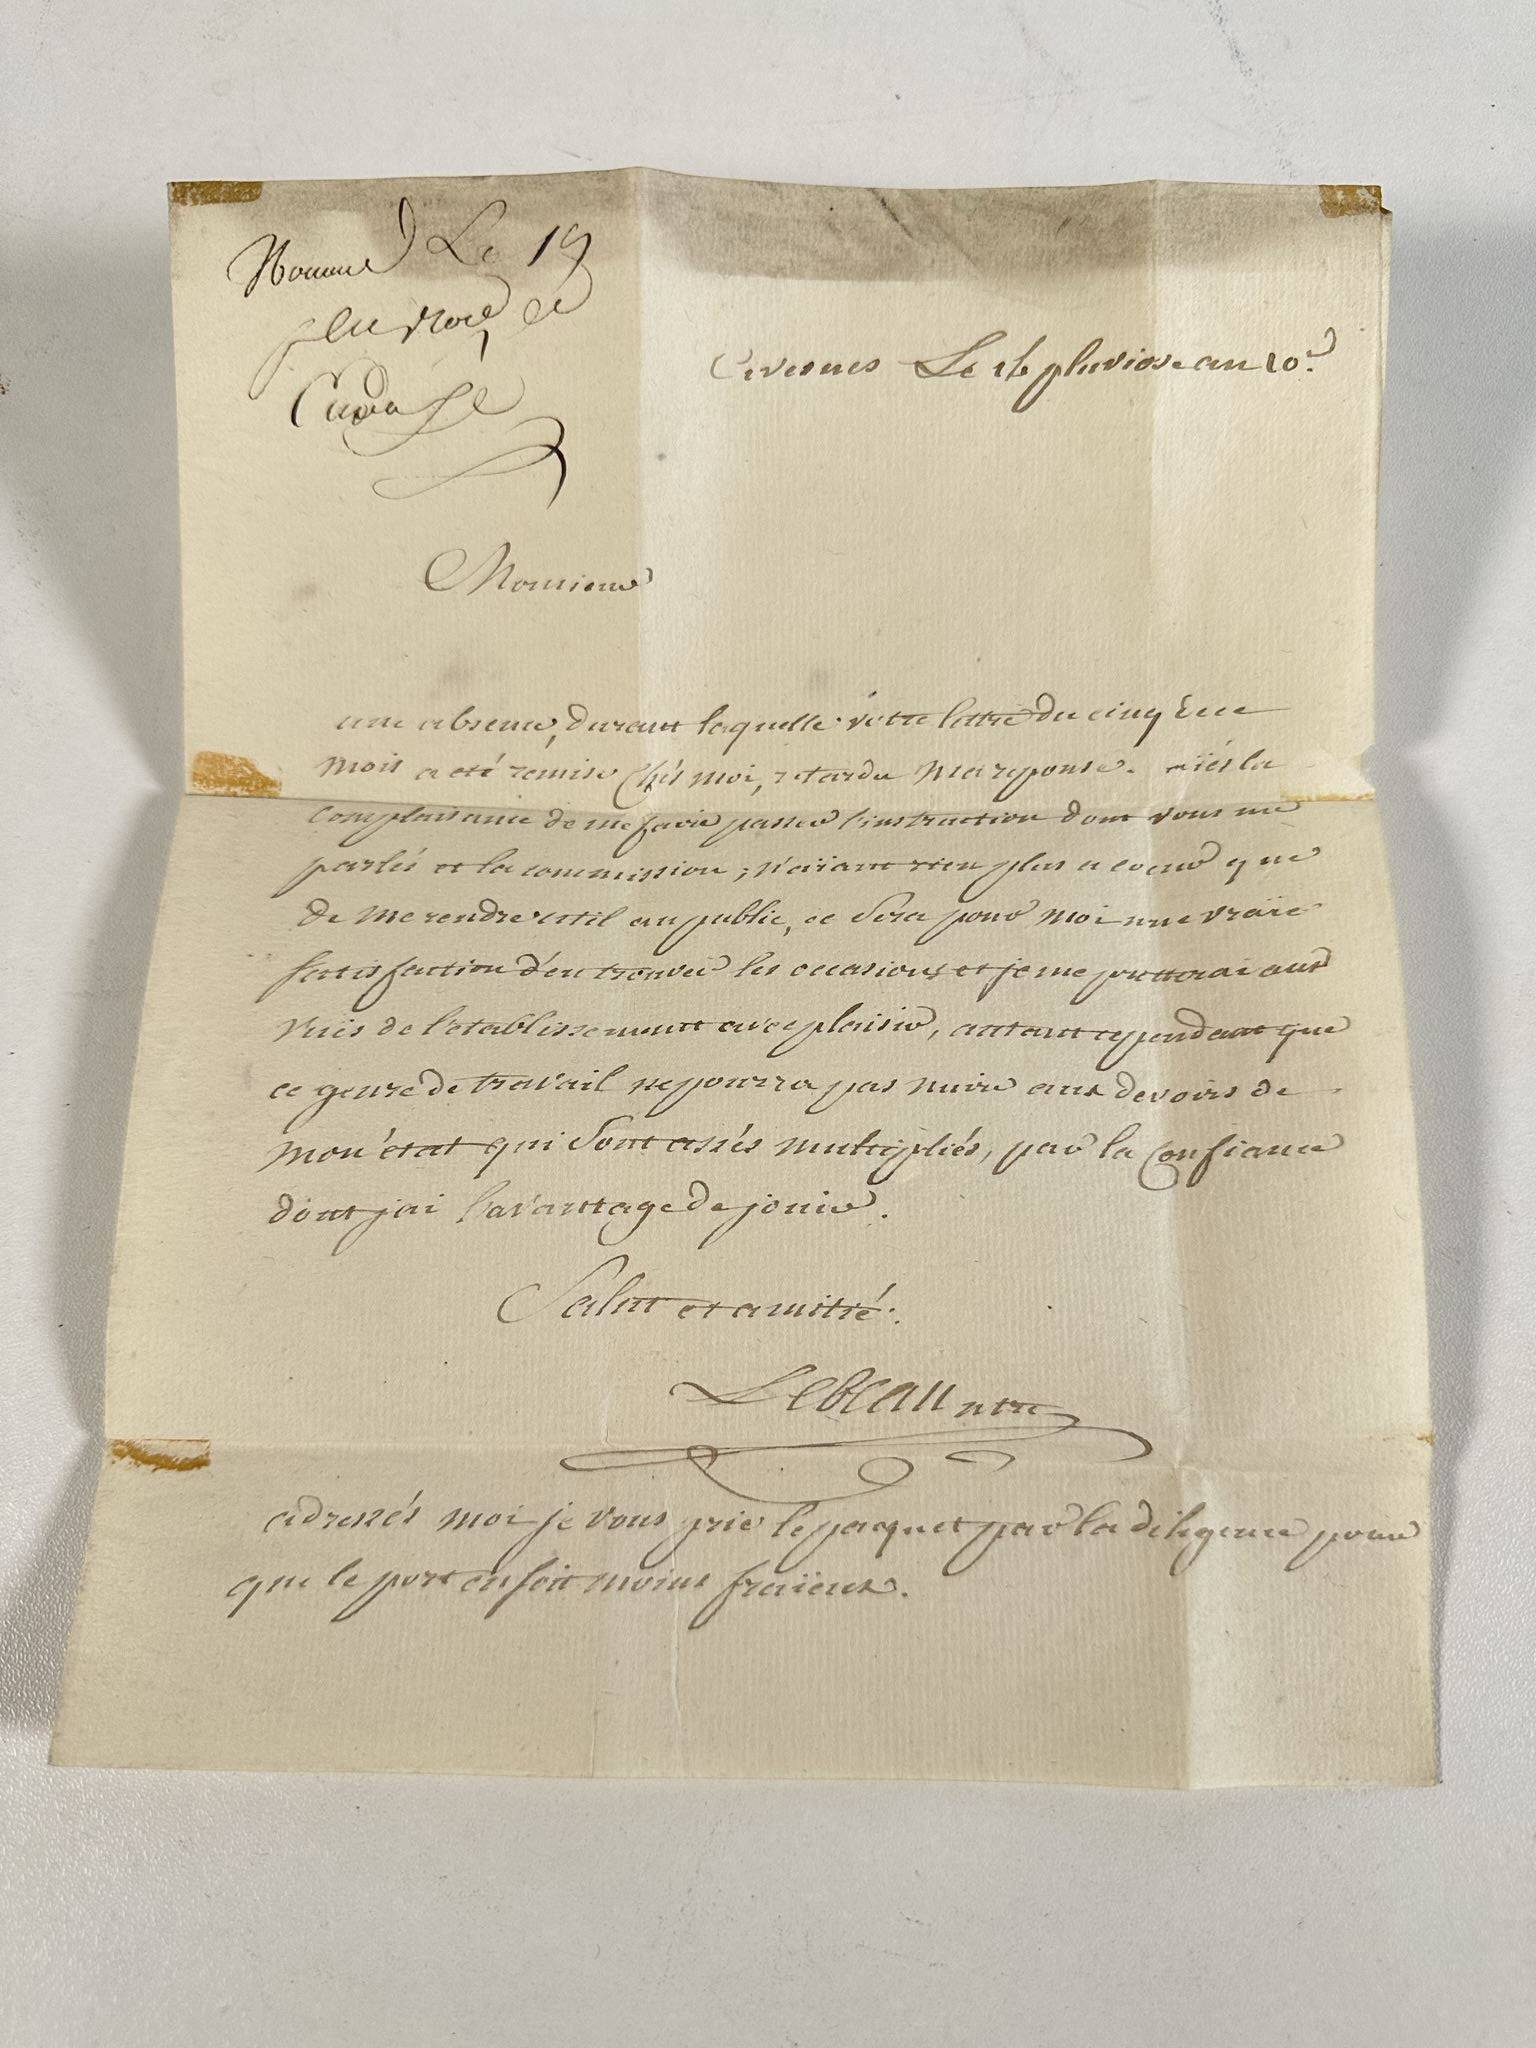 Nommé Le 19
pluviose et
avesnes Le 16 pluviose an 10.e
Monsieur
une absence, durant laquelle votre lettre du cinq de ce
mois a eté remise Chés moi, retarde ma reponse. aiés la
complaisance de me faire passer l'instruction dont vous me
parlés et la commission; n'aiant rien plus a coeur que
de me rendre util au public, ce Sera pour moi une vraïe
satisfaction d'en trouver les occasions et je me pretterai aux
vuës de l'etablissement avec plaisir, autant cependant que
ce genre de travail ne pourra pas nuire aux devoirs de
mon état qui Sont assés multipliés, par la Confiance
dont jai l'avantage de jouir.
Salut et amitié.
Lebeau ntre
adressés moi je vous prie le paquet par la diligence pour
que le port en soit moins fraïeux.